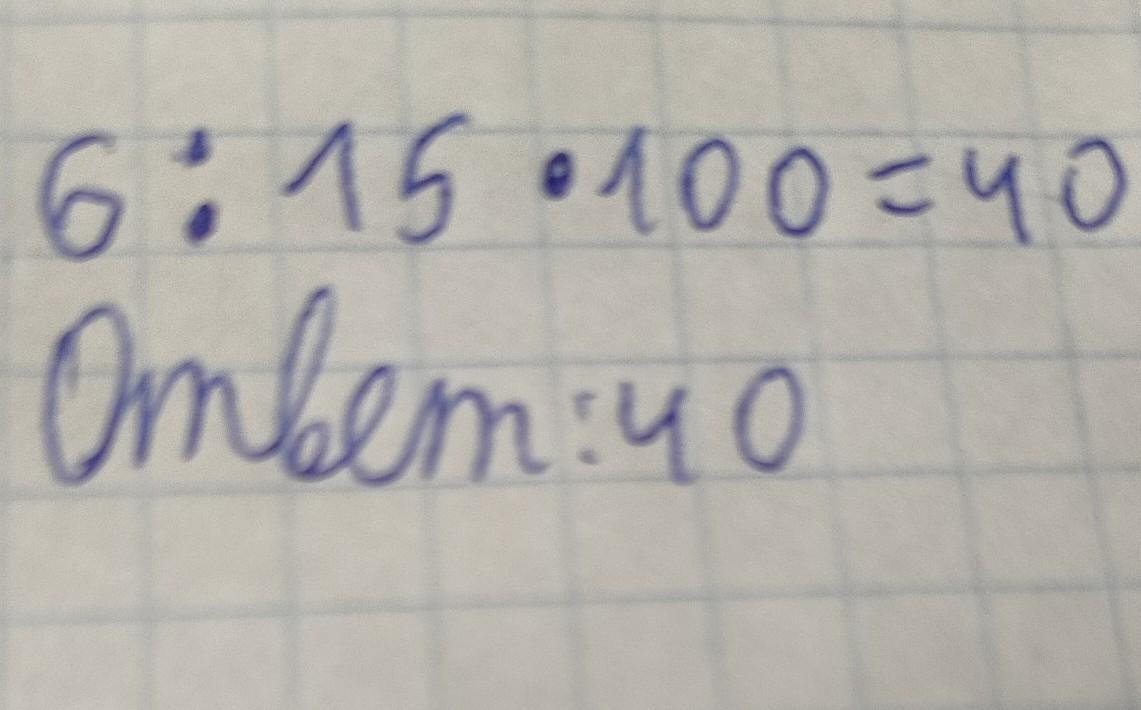 6 : 15 • 100 = 40
Ответ: 40